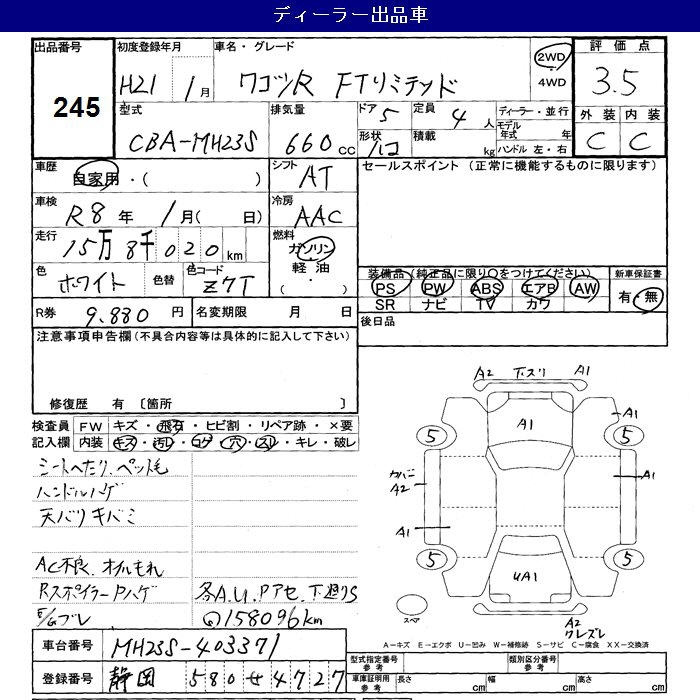 ディーラー出品車
出品番号 245
初度登録年月 H21 年 1月
車名・グレード ワゴンR FTリミテッド
2WD・4WD
評価点 3.5
外装 C 内装 C
型式 CBA-MH23S
排気量 660cc
ドア 5 定員 4人
形状 ハコ 積載 kg
ディーラー・並行
モデル年式 年
ハンドル 左・右
車歴 自家用・( )
シフト AT
車検 R8年 1月( 日)
冷房 AAC
走行 15万8千020km
燃料 ガソリン 軽油 ( ・ )
色 ホワイト 色替 色コード Z7T
セールスポイント (正常に機能するものに限ります)
装備品 (純正品に限り○をつけてください) 新車保証書
PS PW ABS エアB AW 有・無
SR ナビ TV カワ
R券 9,880円 名変期限 月 日
後日品
注意事項申告欄(不具合内容等は具体的に記入して下さい)
修復歴 有 〔箇所 〕
検査員記入欄 FW キズ・飛石・ヒビ割・リペア跡・×要
内装 キズ・汚レ・コゲ・穴・スレ・キレ・破レ
シートヘたり、ペット毛
ハンドルハゲ
天バリキバミ
AC不良、オイルもれ
RスポイラーPハゲ 各A.U.Pアセ、下廻りS
E/Gブレ 158096km
A2 下スリ A1
A1
A1
5 5
カバー A2
A1
A1
5 5
UA1
スペア
A2
ワレズレ
A－キズ E－エクボ U－凹み W－補修跡 S－サビ C－腐食 XX－交換済
車台番号 MH23S-403371
登録番号 静岡 580せ4727
型式指定番号 参考 類別区分番号 参考
車庫証明用 参考 長さ cm 幅 cm 高さ cm